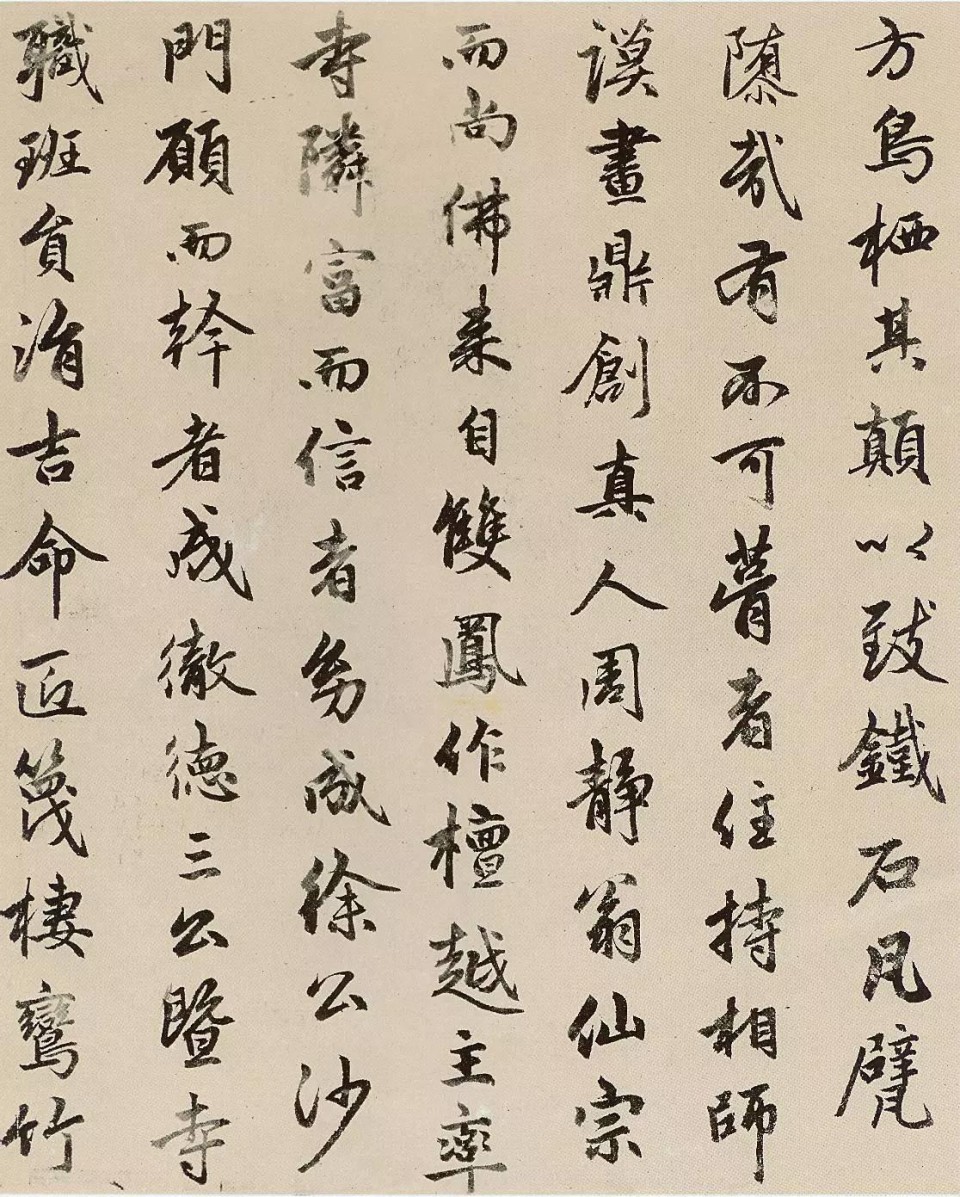 方鳥栖其顛以致鐵石凡甓
隳哉有不可瞢者住持相師
謨畫鼎創真人周静翁仙宗
而尚佛来自雙鳳作檀越主率
寺隣富而信者务成徐公沙
門願而幹者成徹德三公暨寺
職班負涓吉命匠篾棲鸞竹